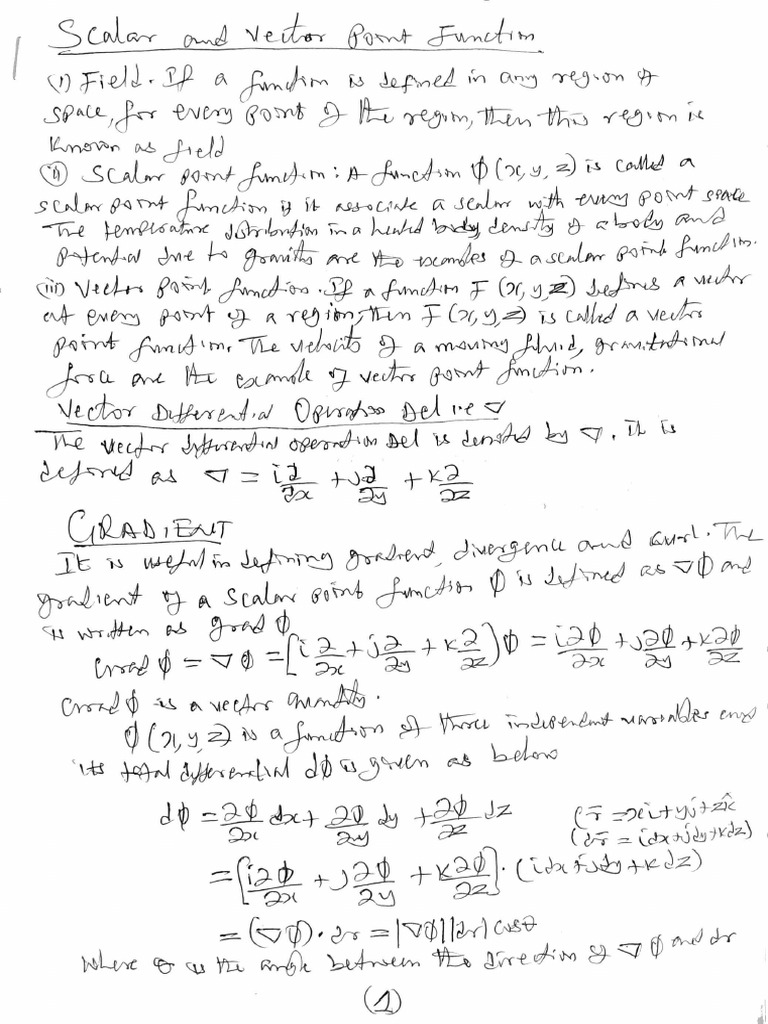 Scalar and Vector Point Function
(i) Field. If a function is defined in any region of
space, for every point of the region, then this region is
known as field
(ii) Scalar point function: A function φ(x, y, z) is called a
scalar point function if it associate a scalar with every point space
The temperature distribution in a heated body density of a body and
potential due to gravity are the examples of a scalar point function.
(iii) Vector point function. If a function F (x, y, z) defines a vector
at every point of a region, then F (x, y, z) is called a vector
point function. The velocity of a moving fluid, gravitational
force are the example of vector point function.
Vector Differential Operation Del i.e ∇
The vector differential operation Del is denoted by ∇. It is
defined as ∇ = i∂/∂x + j∂/∂y + k∂/∂z
GRADIENT
It is useful in defining gradient, divergence and curl. The
gradient of a scalar point function φ is defined as ∇φ and
is written as grad φ
Grad φ = ∇φ = [i ∂/∂x + j∂/∂y + k ∂/∂z)φ = i∂φ/∂x + j∂φ/∂y + k∂φ/∂z
Grad φ is a vector quantity.
φ(x, y, z) is a function of three independent variables and
its total differential dφ is given as below
dφ = ∂φ/∂x dx + ∂φ/∂y dy + ∂φ/∂z dz (r̄ = xi + yj + zk̂
(dr̄ = idx + jdy + kdz)
= [i∂φ/∂x + j∂φ/∂y + k∂φ/∂z] · (idx + jdy + k dz)
= (∇φ) · dr = |∇φ||dr| cosθ
where θ is the angle between the direction of ∇φ and dr
(1)